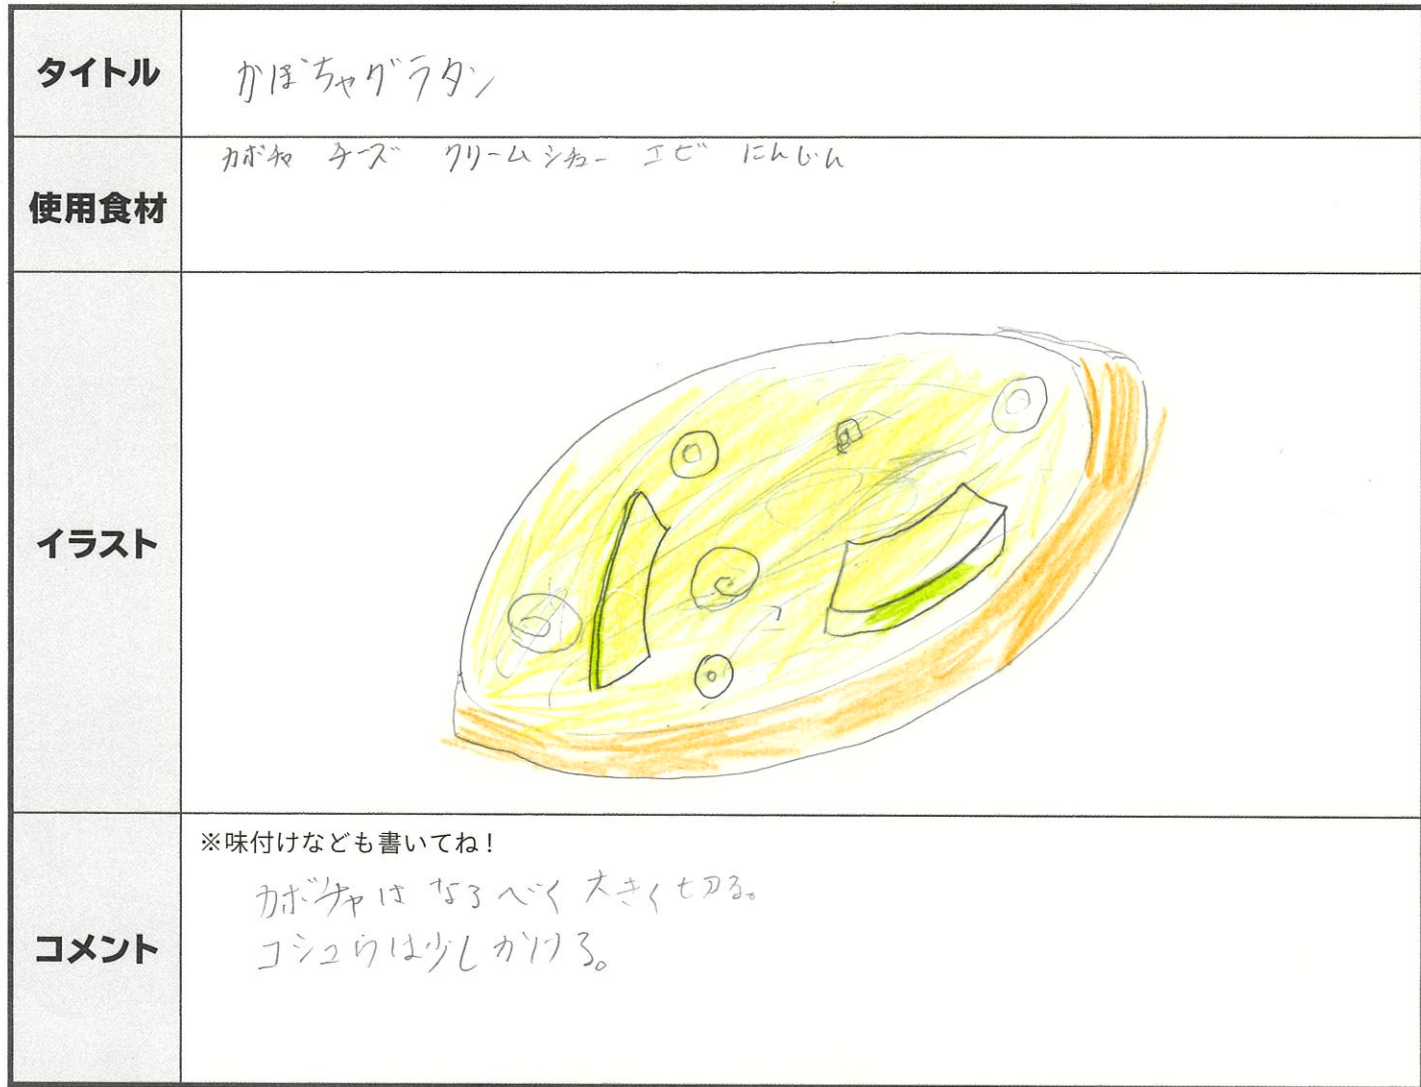 タイトル
かぼちゃグラタン
使用食材
カボチャ チーズ クリームシチュー エビ にんじん
イラスト
コメント
※味付けなども書いてね！
カボチャは なるべく 大きく切る。
コシュウは少しかける。